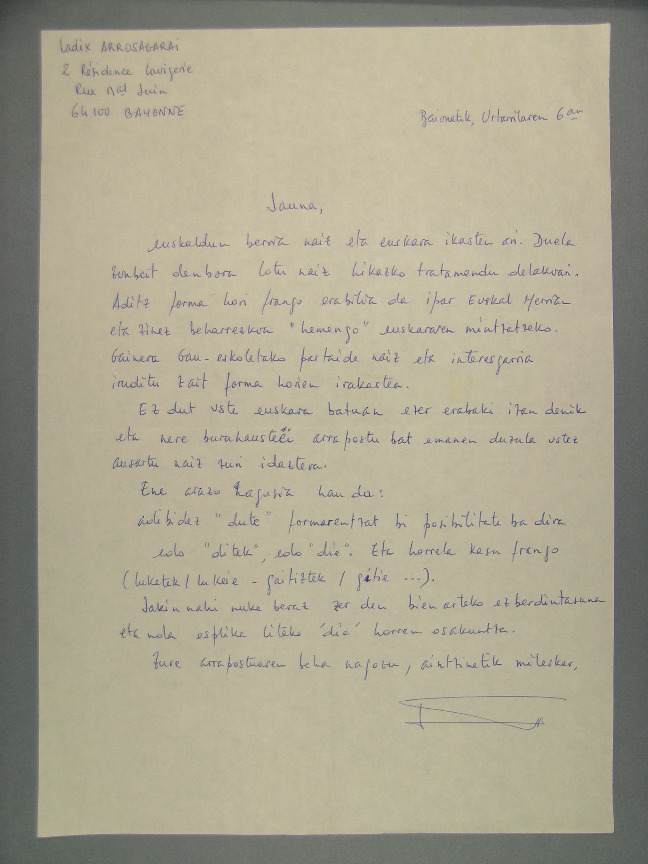 Ladix ARROSAGARAI
2 Résidence Lavigerie
Rue Mal Juin
64100 BAYONNE
Baionatik, Urtarrilaren 6an
Jauna,
euskaldun berria naiz eta euskara ikasten ari. Duela
zunbeit denbora lotu naiz hikazko tratamendu delakoari.
Aditz forma hori frango erabilia da ipar Euskal Herrian
eta zinez beharrezkoa "hemengo" euskararen mintzatzeko.
Gainera Gau-eskoletako partaide naiz eta interesgarria
iruditu zait forma horien irakastea.
Ez dut uste euskara batuan ezer erabaki izan denik
eta nere buruhausteei arrapostu bat emanen duzula ustez
ausartu naiz zuri idaztera.
Ene arazo nagusia hau da:
adibidez "dute" formarentzat bi posibilitate ba dira
edo "ditek", edo "die". Eta horrela kasu frango
(luketek / lukeie - gaitiztek / gitie ...).
Jakin nahi nuke beraz zer den bien arteko ezberdintasuna
eta nola esplika liteke 'die' horren osakuntza.
Zure arrapostuaren beha nagozu, aintzinetik milesker,